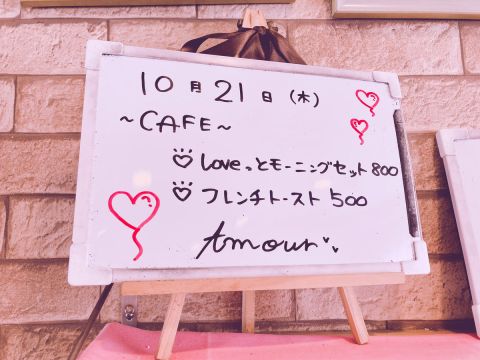 10月21日(木)
~CAFE~
Love。とモーニングセット800
フレンチトースト500
Amour